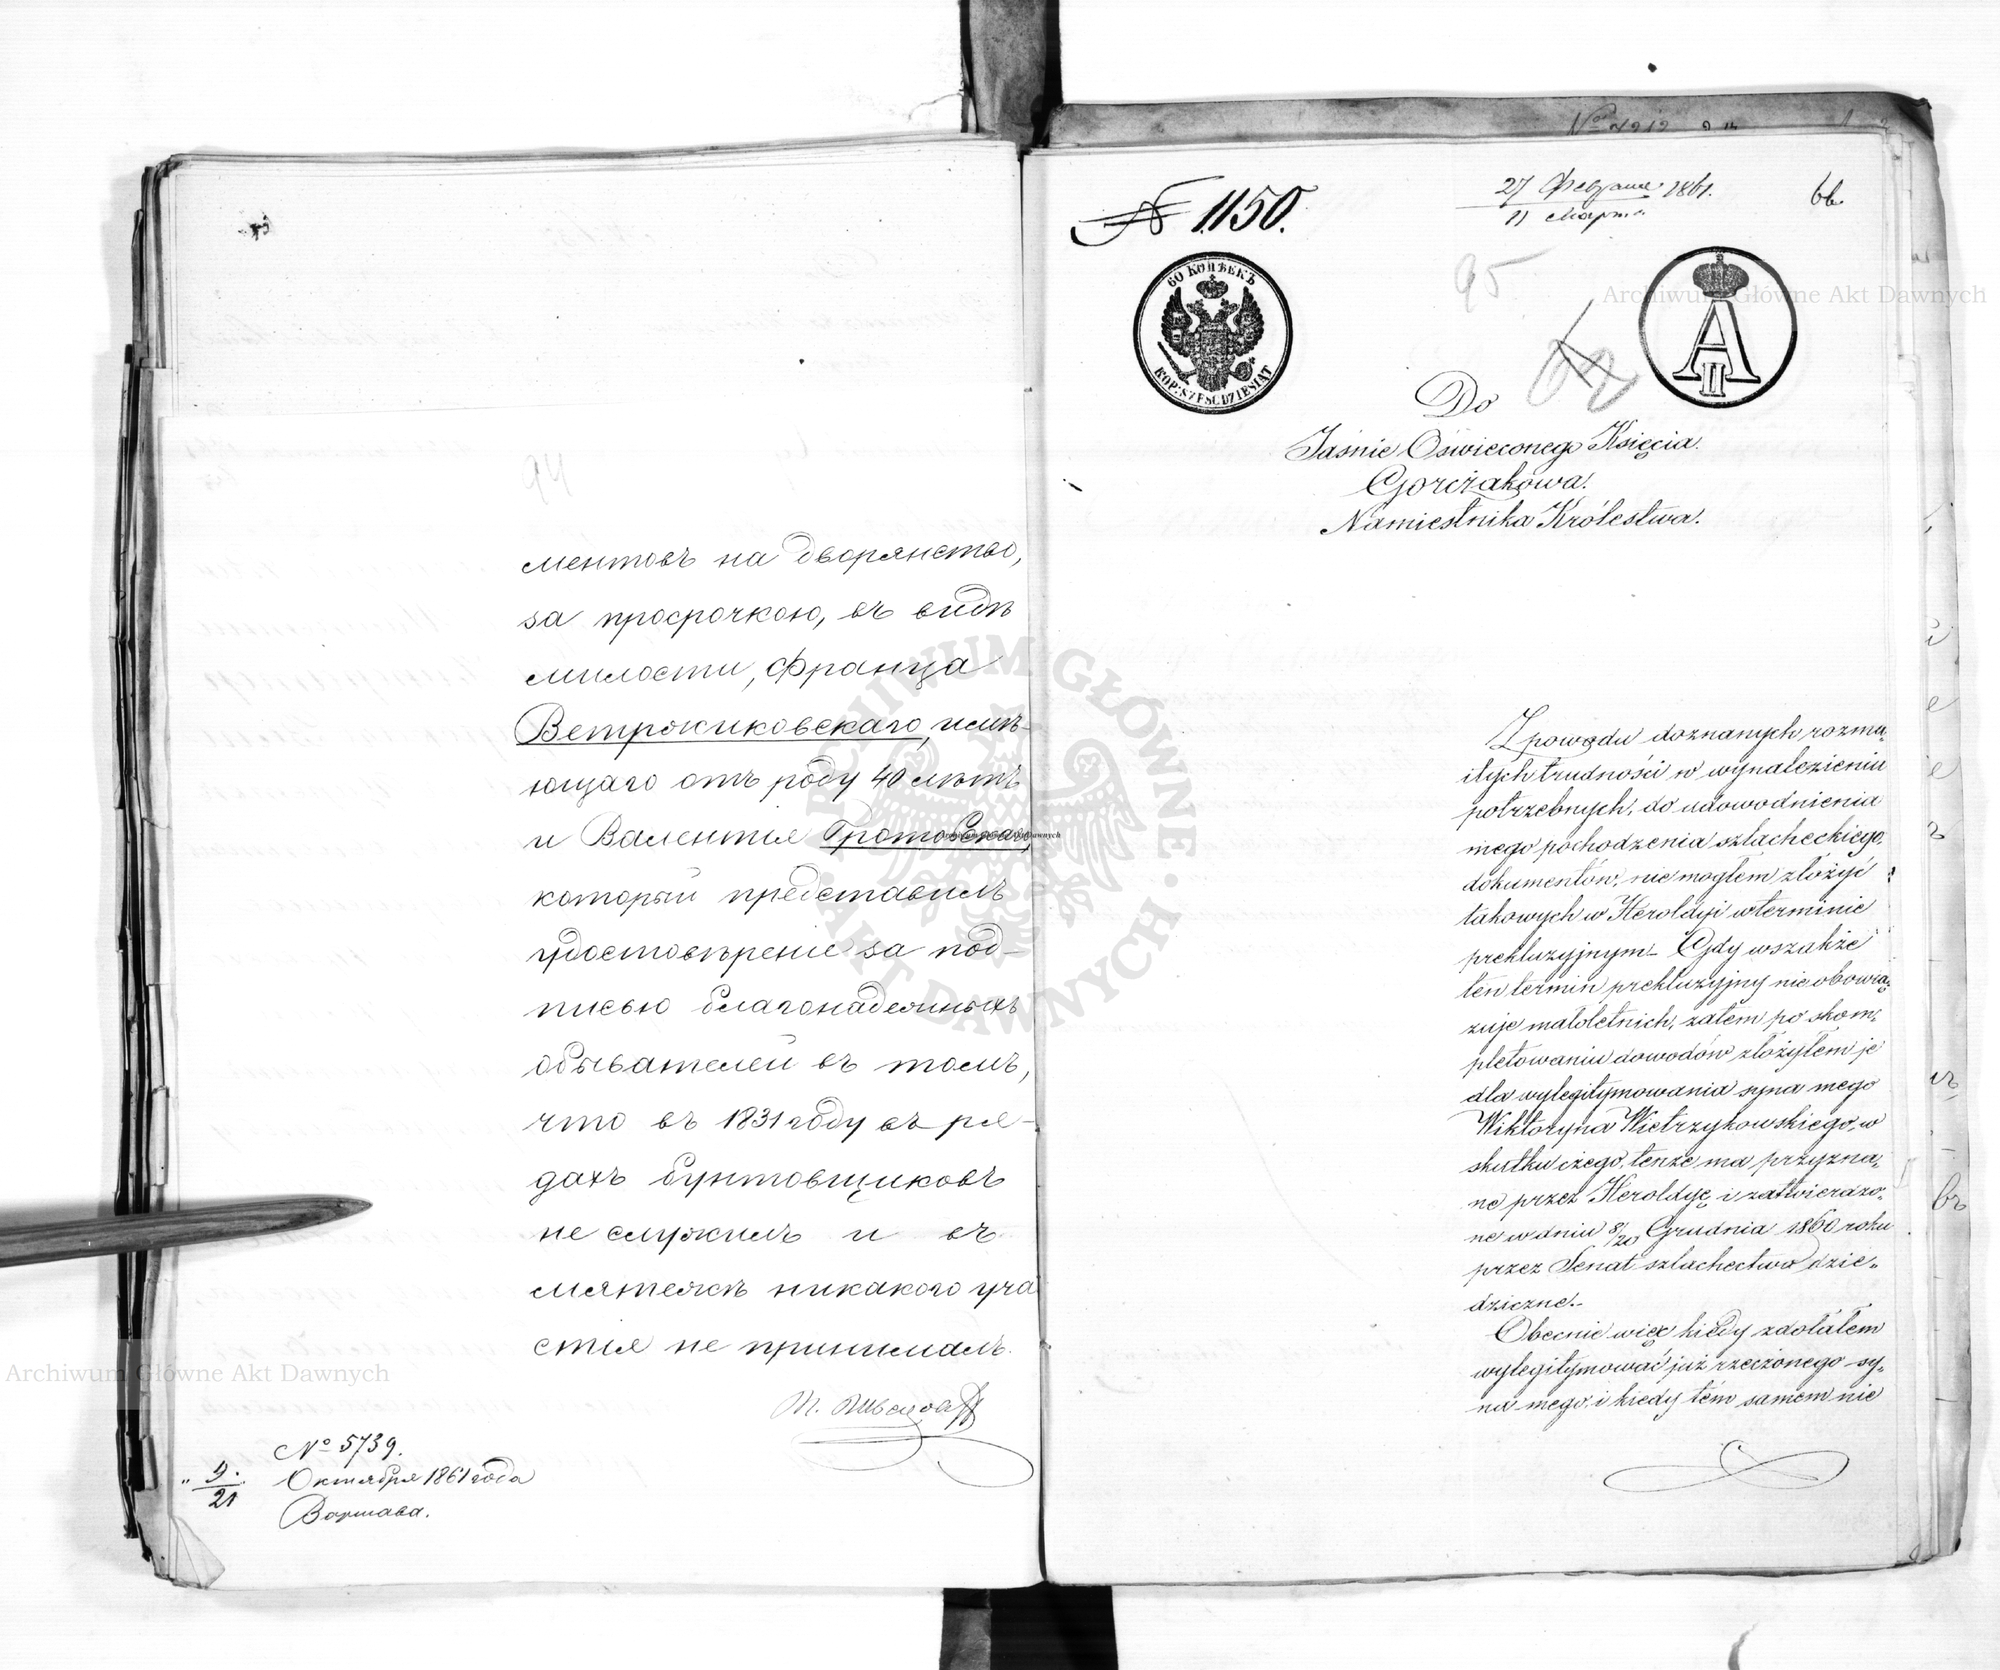 ментовъ на дворянство,
за просрочкою, въ видѣ
милости, Франца
Ветржиковскаго, имѣ-
ющаго отъ роду 40 лѣтъ
и Валентія Гротовскаго,
который представилъ
удостовѣреніе за под-
писью благонадежныхъ
обывателей въ томъ,
что въ 1831 году въ ря-
дахъ бунтовщиковъ
не служилъ и въ
мятежѣ никакого уча
стія не принималъ.
№ 5739.
" 9. Октября 1861 года
21
Варшава.
№ 1150.
27 Февраля 1861.
11 Марта
66.
95
60 КОПѢЕКЪ
KOP: SZEŚĆDZIESIĄT
А II
Do
Jaśnie Oświeconego Księcia
Gorczakowa.
Namiestnika Królestwa.
Z powodu doznanych rozma„
itych trudności w wynalezieniu
potrzebnych, do udowodnienia
mego pochodzenia szlacheckiego,
dokumentów, nie mogłem złożyć
takowych w Heroldyi w terminie
prekluzyjnym. Gdy wszakże
ten termin prekluzyjny nie obowią„
zuje małoletnich, zatem po skom„
pletowaniu dowodów złożyłem je
dla wylegitymowania syna mego
Wiktoryna Wietrzykowskiego, w
skutku czego, tenże ma przyzna„
ne przez Heroldyę i zatwierdzo„
ne w dniu 8/20 Grudnia 1860 roku
przez Senat szlachectwo dzie„
dziczne.-
Obecnie więc kiedy zdołałem
wylegitymować już rzeczonego sy„
na mego, i kiedy tém samem nie
Archiwum Główne Akt Dawnych
Archiwum Główne Akt Dawnych
Archiwum Główne Akt Dawnych
ARCHIWUM GŁÓWNE · AKT DAWNYCH ·